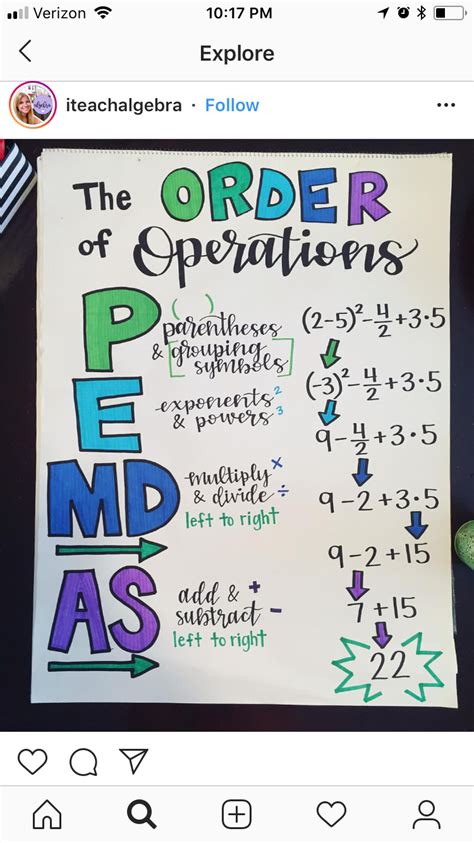 Verizon 10:17 PM
Explore
iteachalgebra · Follow
The ORDER
of Operations
P
( )
parentheses
& [grouping
symbols]
E
exponents²
& powers³
MD
multiply ×
& divide ÷
left to right
AS
add & +
subtract -
left to right
(2-5)²-4/2+3·5
(-3)²-4/2+3·5
9-4/2+3·5
9-2+3·5
9-2+15
7+15
22